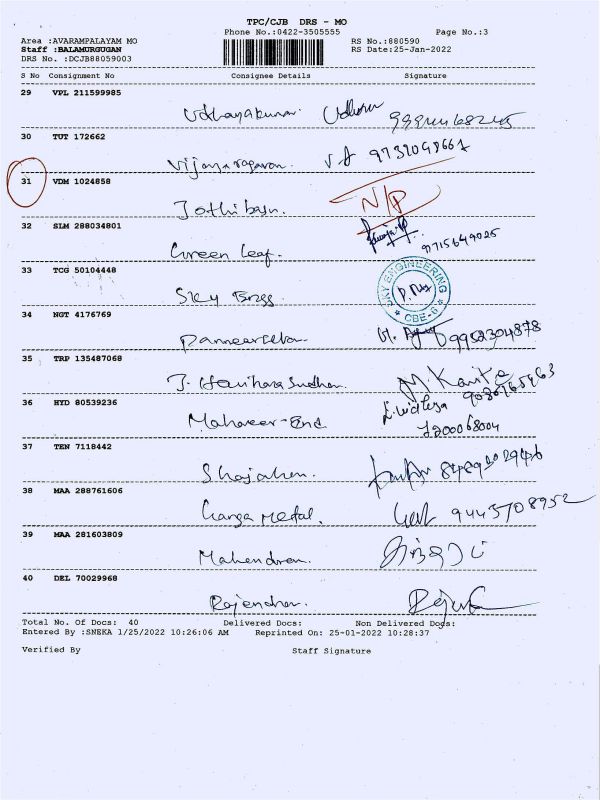 TPC/CJB DRS - MO
Phone No.:0422-3505555 Page No.:3
Area :AVARAMPALAYAM MO RS No.:880590
Staff :BALAMURGUGAN RS Date:25-Jan-2022
DRS No. :DCJB88059003
S No Consignment No Consignee Details Signature
29 VPL 211599985
Udhayakumar.
30 TUT 172662
Vijayaragavan.
31 VDM 1024858
Jothibasu. N/P
32 SLM 288034801
Green Leaf. 9715649025
33 TCG 50104448
Sky Engg SKY ENGINEERING * CBE-6 *
34 NGT 4176769
Panneerselvam 9952304878
35 TRP 135487068
J. Hariharasudhan.
36 HYD 80539236
Mahaveer-End 7200068004
37 TEN 7118442
Shajahan.
38 MAA 288761606
Ganga Metal. 9445708952
39 MAA 281603809
Mahendran.
40 DEL 70029968
Rajendran.
Total No. Of Docs: 40 Delivered Docs: Non Delivered Docs:
Entered By :SNEKA 1/25/2022 10:26:06 AM Reprinted On: 25-01-2022 10:28:37
Verified By Staff Signature